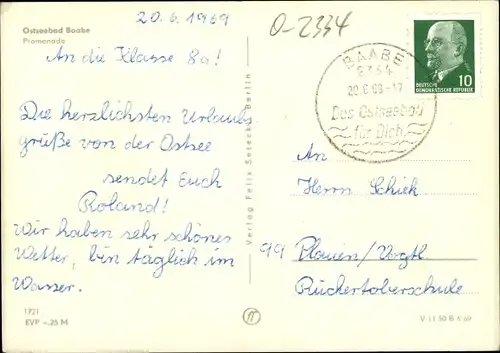 20.6.1969
O-2334
Ostseebad Baabe
Promenade
An die Klasse 8a!
Die herzlichsten Urlaubs-
grüße von der Ostsee
sendet Euch
Roland!
Wir haben sehr schönes
Wetter, bin täglich im
Wasser.
1721
EVP -.25 M
Verlag Felix Setecki, Berlin
BAABE
2334
20.6.69-17
Das Ostseebad
für Dich
10
DEUTSCHE
DEMOKRATISCHE REPUBLIK
An
Herrn Schick
99 Plauen/Vogtl
Rückertoberschule
V 11 50 B 6/69